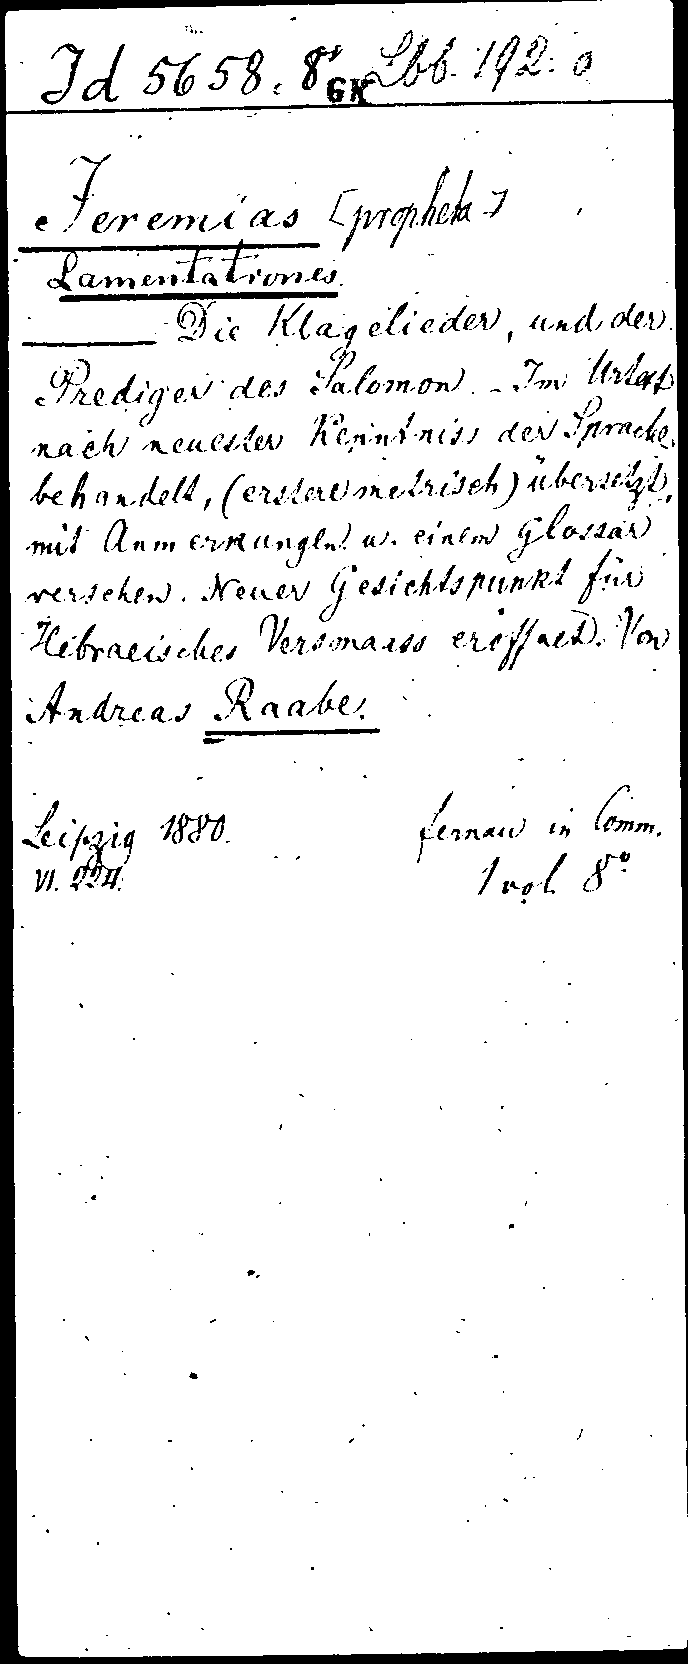 Id 5658. 8° GK Lbb. 192. o
Jeremias [propheta]
Lamentationes.
——— Die Klagelieder, und der
Prediger des Salomon. - Im Urtext
nach neuester Kenntniss der Sprache
behandelt, (erstere metrisch) übersetzt,
mit Anmerkungen u. einem Glossar
versehen. Neuer Gesichtspunkt für
Hebraeisches Versmaass eröffnet. Von
Andreas Raabe.
Leipzig 1880. fernau in Comm.
VI. 224. 1 vol. 8°